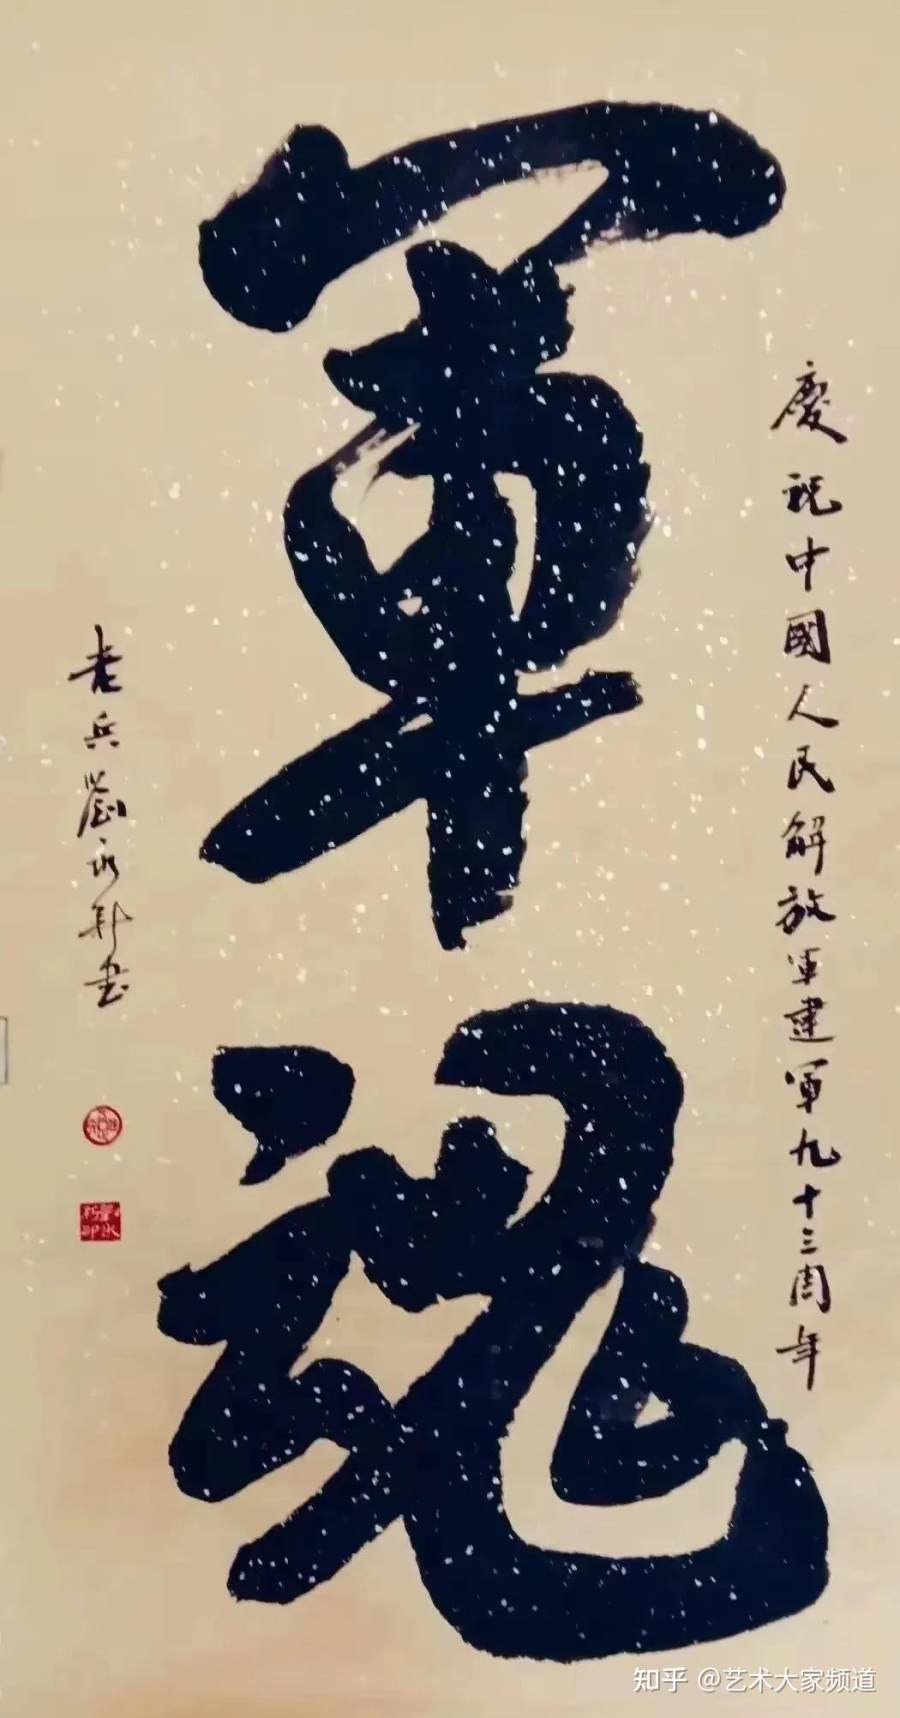 慶祝中國人民解放軍建軍九十三周年
軍魂
老兵劉永新書
知乎 @艺术大家频道